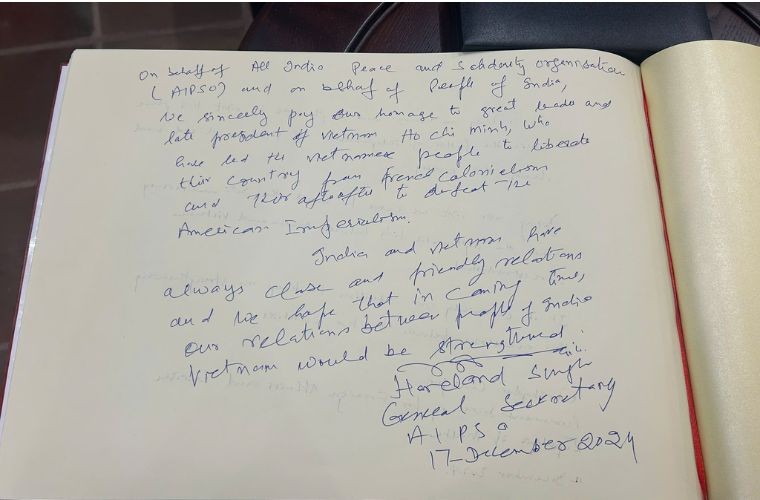 On behalf of All India Peace and Solidarity organisation
(AIPSO) and on behlaf of People of India,
We sincerely pay our homage to great leader and
late president of Vietnam Ho Chi Minh, who
have led the vietnamese people to liberate
thir country from french colonielism
and to defeat the
American Imperialism.
India and vietnam have
always close and friendly relations
and we hope that in coming time,
our relations between people of India
Vietnam would be strengthened.
Singh
General Secretary
AIPSO
17-December 2024